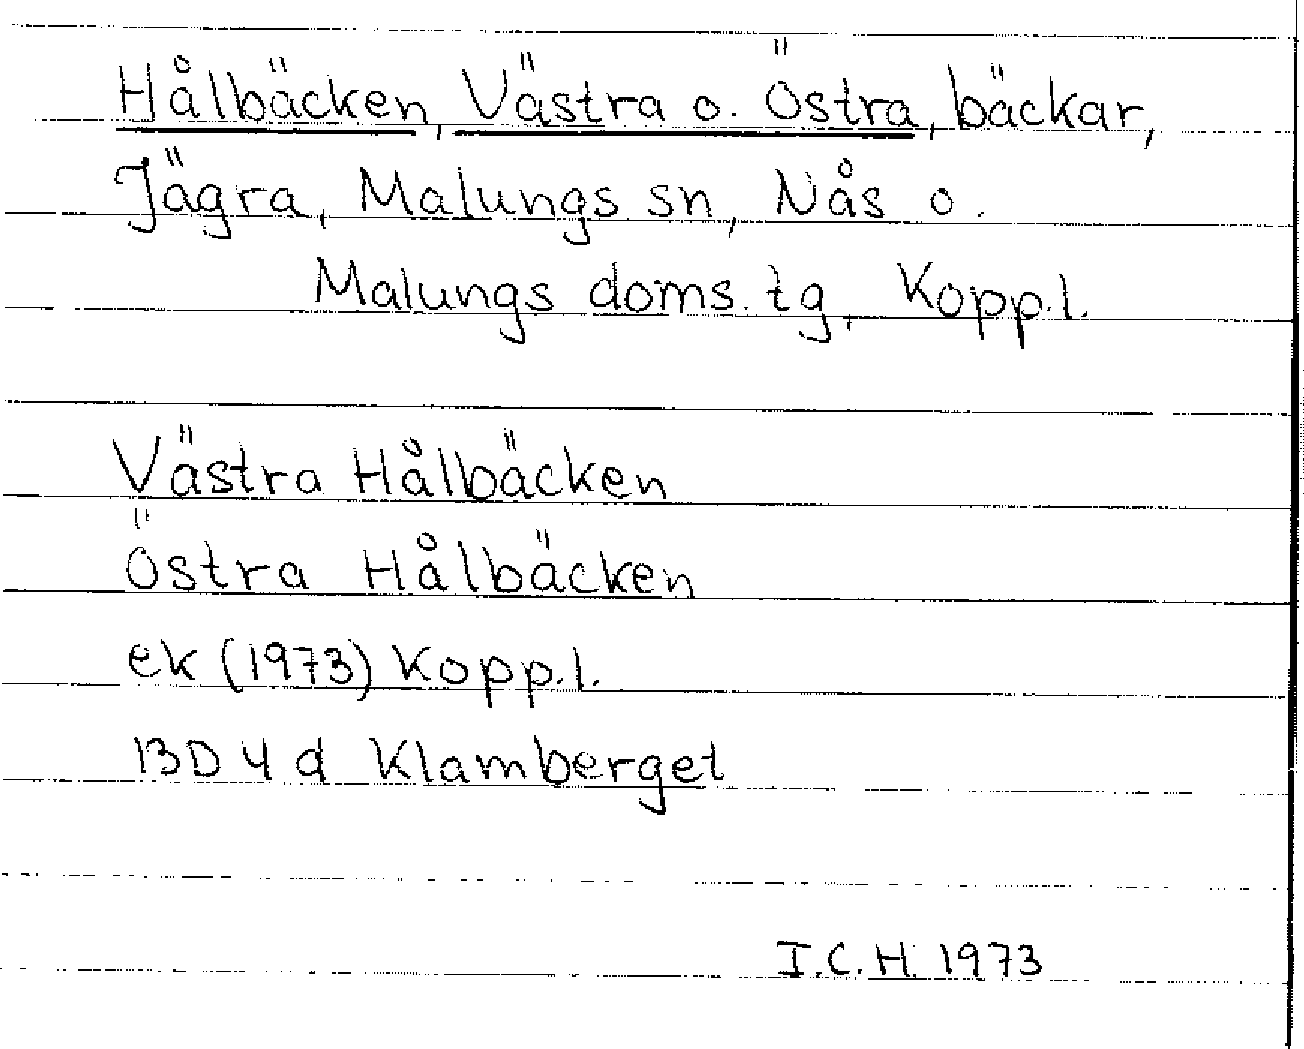 Hålbäcken, Västra o. Östra, bäckar,
Jägra, Malungs sn, Nås o.
Malungs doms. tg, Kopp.l.
Västra Hålbäcken
Östra Hålbäcken
ek (1973) Kopp.l.
13D 4 d Klamberget
I.C.H. 1973